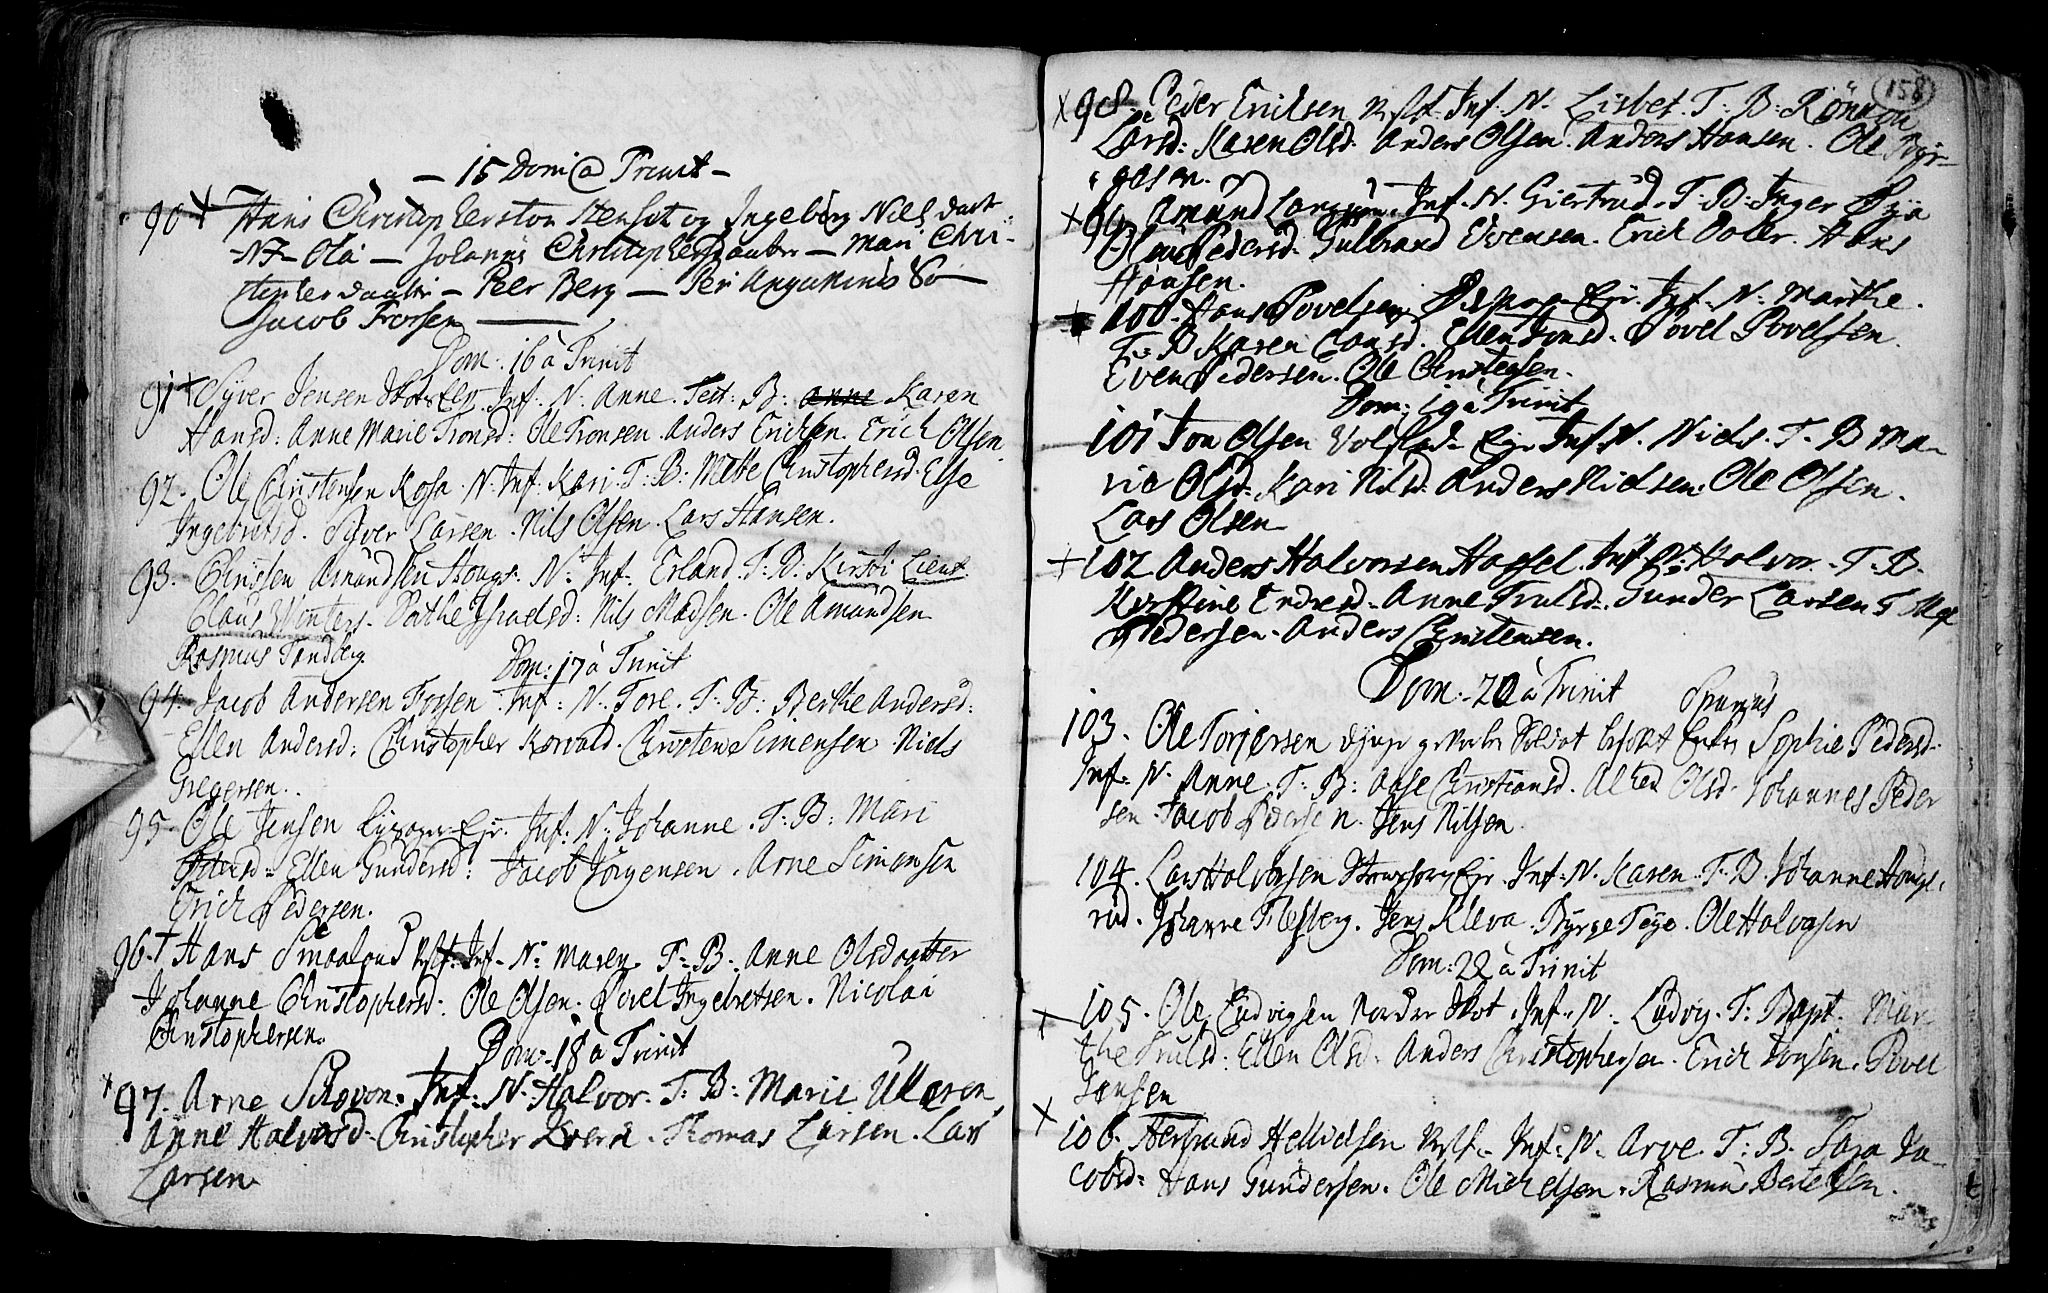 — 15 Domi@ Trinit —
90 Hans Christopherson Stensæt og Ingebörg Nils daat
N I — Ola — Johannis Christophersdaatter — Mari Chri-
stopherdaatter — Peer Berg — Per
Jacob Frorsen
Dom: 16 a Trinit
91 Syver Jensen Inf: N: Anne. Test: B: Anne Karen
Hansd: Anne Marie Tronsd: Ole Tronsen. Anders Erichsen. Erich Olsen
92. Ole Christensen Kosa. N: Inf: Kari. T: B: Mette Christophersd. Else
Ingebretsd. Syver Larsen. Nils Olsen. Lars Hansen.
93. Christen Amundsen Hougs. N: Inf. Erland. T. B. Kirsti Lieut
Claus Winters. Nils Madsen. Ole Amundsen
Rasmus Tandberg
Dom: 17 a Trinit
94. Jacob Andersen Fossen. Inf: N. Tore. T. B: Berthe Andersd:
Ellen Andersd: Christopher Korvald. Christen Simensen Niels
Gregersen.
95. Ole Jensen Ejr. Inf: N: Johanne. T: B: Mari
Ellen Gundersd: Jacob Jörgensen. Arne Simonsen
Erich Pedersen.
96. Hans Smaalond Inf. N: Maren. T: B. Anne Olsdaatter
Johanne Christophersd: Ole Olsen. Povel Ingebretsen. Nicolai
Christophersen.
Dom: 18 a Trinit
97. Arne Skovon. Inf: N. Halvor. T: B: Marie Ulleren,
Anne Halvorsd. Christopher Thomas Larsen. Lars
Larsen.
158
98. Peder Erichsen Inf. N. Lisbet. T. B: Rönnou
Larsd: Karen Olsd. Anders Olsen. Anders Hansen. Ole Byr-
gesen.
99. Amund Inf. N. Giertrud. T. B: Inger
Pedersd. Gulbrand Evensen. Erich Hans
Hansen.
100. Hans Povelsen Ejr. Inf. N. Marthe.
T. B Karen Ellen Povel Povelsen.
Even Pedersen. Ole Christensen.
Dom: 19 a Trinit
101 Jon Olsen Volstad Ejr Inf. N. Niels. T. B Ma-
rie Olsd. Kari Nilsd: Anders Nielsen. Ole Olsen.
Lars Olsen
102 Anders Halvorsen Hassel. Inf N: Halvor. T. B.
Kirstine Endresd. Anne Trulsd. Gunder Larsen
Pedersen. Anders Christensen.
Dom: 20 a Trinit
Spurius
103. Ole Torjersen Soldat Sophie Pedersd.
Inf. N. Anne. T: B: Aase Christiansd. Alhed Olsd. Johannes Peder
sen. Jacob Pedersen. Jens Nilsen.
104. Lars Halvorsen Ejr. Inf: N. Karen. T. B. Johanne Hougs
rud. Johanne Flesberg. Jens Kleva. Byrge Ole Halvorsen
Dom: 22 a Trinit
105. Ole Ludvigsen Nordre Skot. Inf. N: Ludvig. T: Bapt. Mar
the Trulsd: Ellen Olsd: Anders Christophersen. Erich Jonsen. Povel
Jansen
106. Herbrand Hellidsen Inf. N. Arve. T: B. Sara Ja-
cobsd: Hans Gundersen. Ole Michelsen. Rasmus Bertelsen.